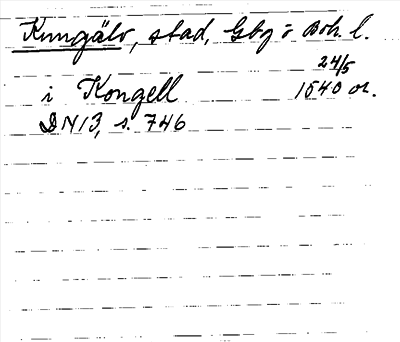 Kungälv, stad, Gbg o Boh. l.
24/5
i Kongell 1540 or.
DN 13, s. 746